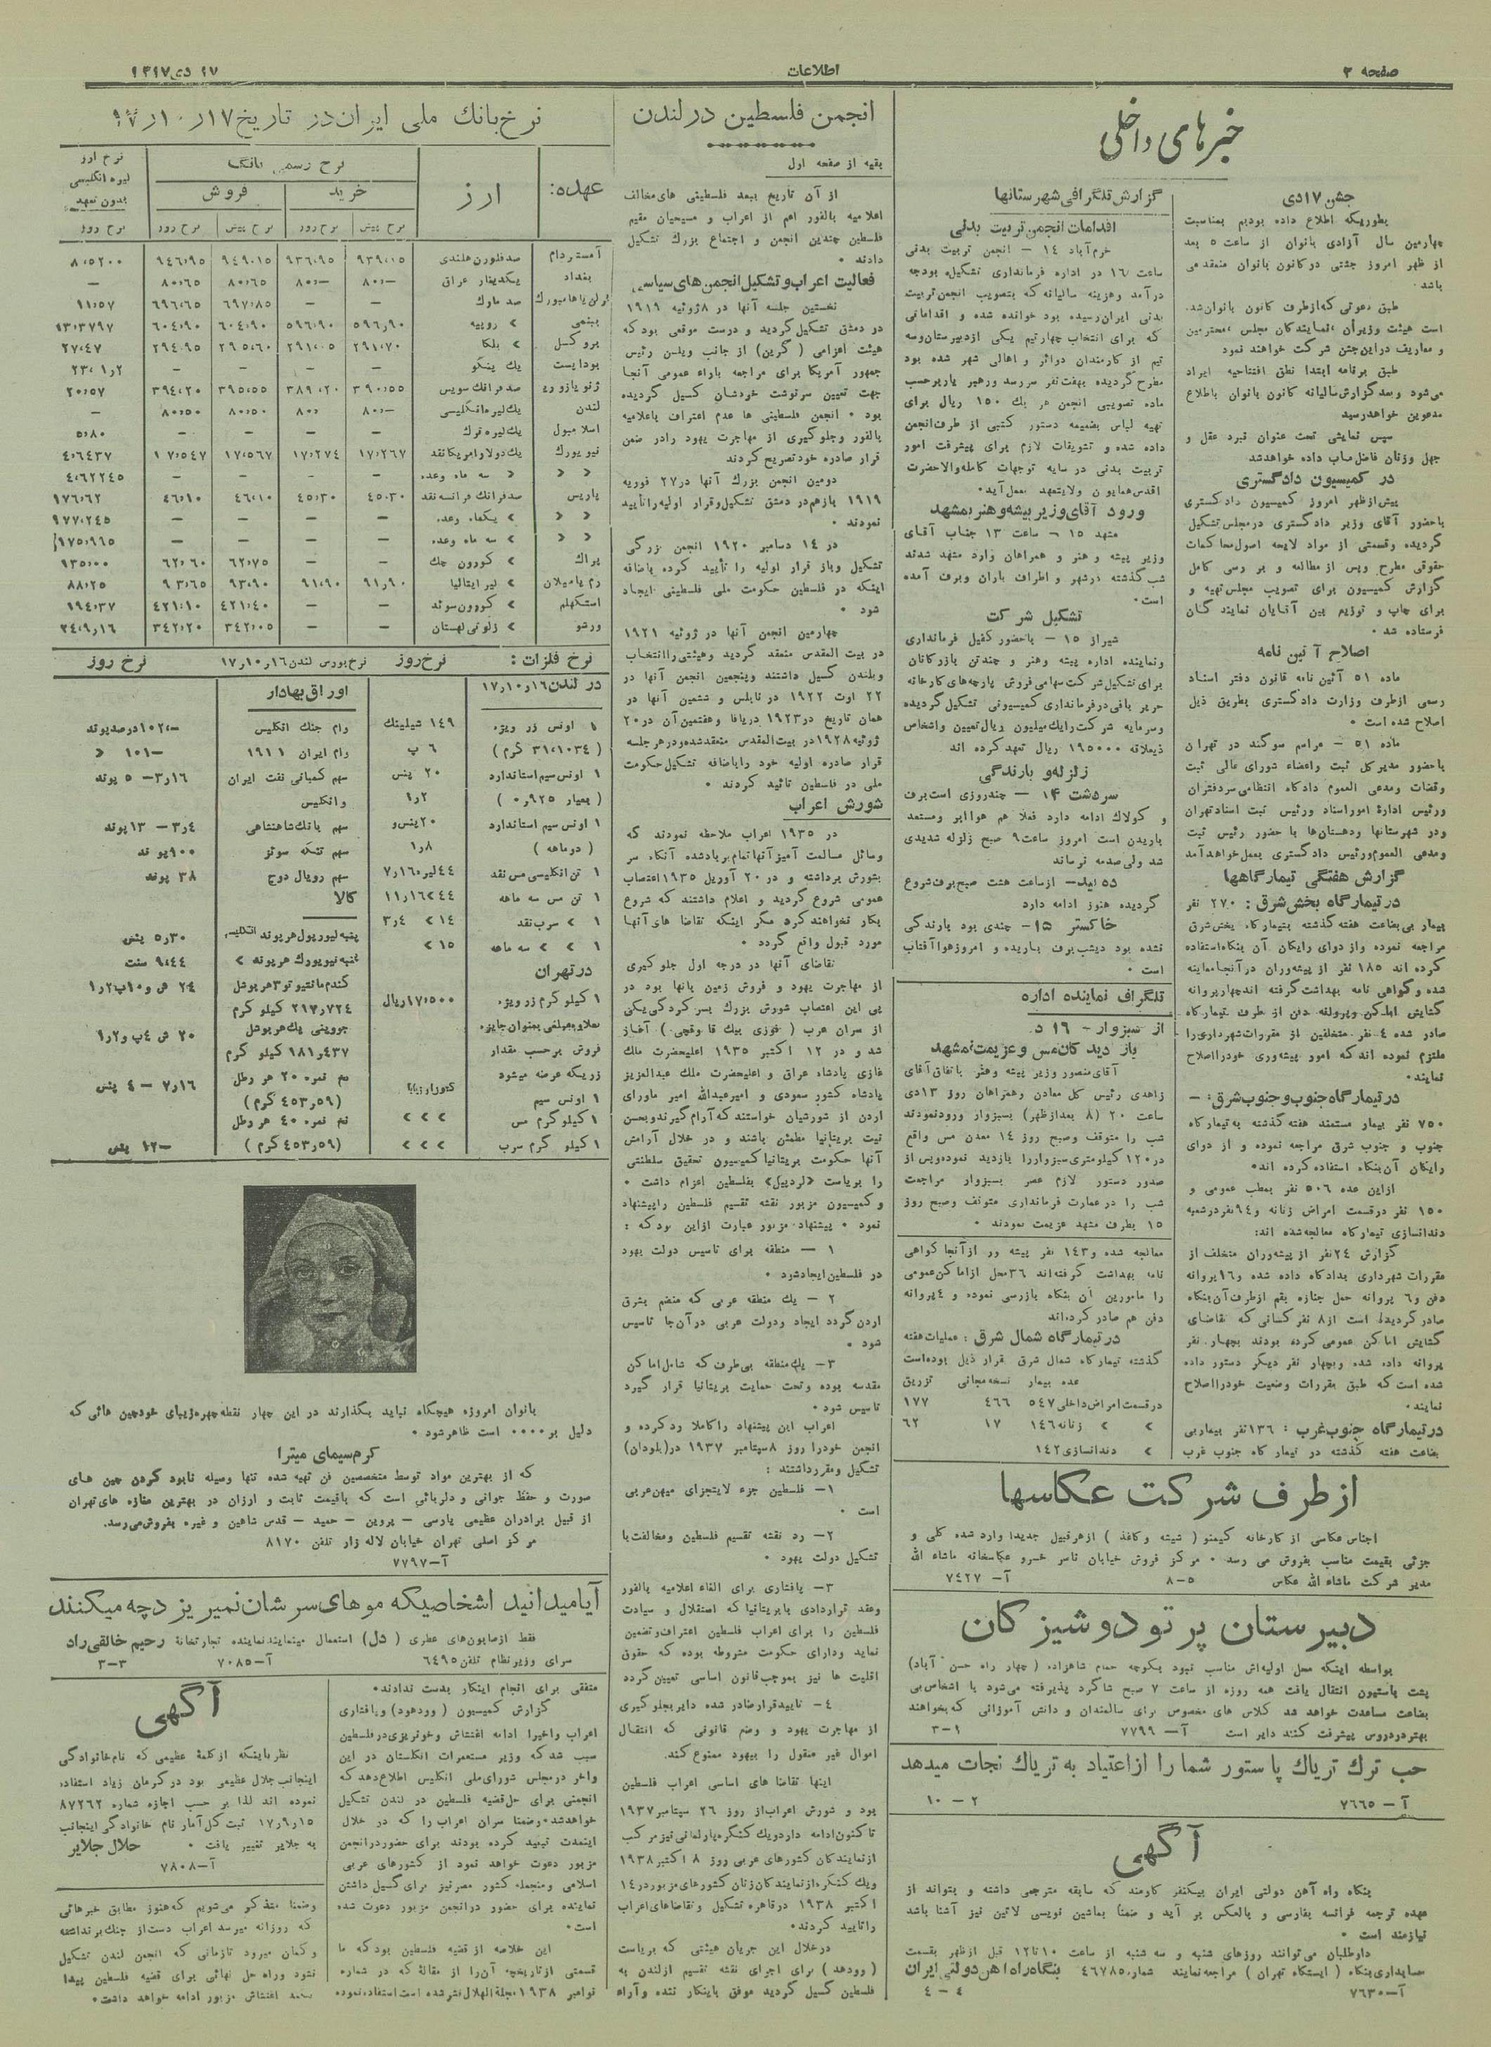 صفحه ۲
اطلاعات
۱۷ دی ۱۳۱۷
خبرهای داخلی
جشن ۱۷ دی
بطوریکه اطلاع داده بودیم بمناسبت
چهارمین سال آزادی بانوان از ساعت ۵ بعد
از ظهر امروز جشنی در کانون بانوان منعقد می
باشد.
طبق دعوتی که از طرف کانون بانوان شده
است هیئت وزیران، نمایندگان مجلس، محترمین
و معاریف در این جشن شرکت خواهند نمود
طبق برنامه ابتدا نطق افتتاحیه ایراد
می‌شود و بعد گزارش سالیانه کانون بانوان باطلاع
مدعوین خواهد رسید
سپس نمایشی تحت عنوان نبرد عقل و
جهل وزنان فاضل‌مآب داده خواهد شد
در کمیسیون دادگستری
پیش از ظهر امروز کمیسیون دادگستری
باحضور آقای وزیر دادگستری در مجلس تشکیل
گردیده و قسمتی از مواد لایحه اصول محاکمات
حقوقی مطرح و پس از مطالعه و بررسی کامل
گزارش کمیسیون برای تصویب مجلس تهیه و
برای چاپ و توزیع بین آقایان نمایندگان
فرستاده شد.
اصلاح آئین نامه
ماده ۵۱ آئین نامه قانون دفتر اسناد
رسمی از طرف وزارت دادگستری بطریق ذیل
اصلاح شده است.
ماده ۵۱ - مراسم سوگند در تهران
باحضور مدیر کل ثبت و اعضاء شورای عالی ثبت
وقضات ومدعی العموم دادگاه انتظامی سردفتران
ورئیس اداره امور اسناد ورئیس ثبت اسناد تهران
و در شهرستانها ودهستان‌ها با حضور رئیس ثبت
ومدعی العموم ورئیس دادگستری بعمل خواهد آمد
گزارش هفتگی تیمارگاهها
در تیمارگاه بخش شرق: ۲۷۰ نفر
بیمار بی بضاعت هفته گذشته بتیمارگاه بخش شرق
مراجعه نموده واز دوای رایگان آن بنگاه استفاده
کرده اند ۱۸۵ نفر از پیشه‌وران در آنجا معاینه
شده وگواهی نامه بهداشت گرفته اند چهار پروانه
گشایش اماکن وپروانه دفن از طرف تیمارگاه
صادر شده ۴ نفر متخلفین از مقررات شهرداری را
ملتزم نموده اند که امور پیشه‌وری خود را اصلاح
نمایند.
در تیمارگاه جنوب و جنوب شرق: -
۷۵۰ نفر بیمار مستمند هفته گذشته به تیمارگاه
جنوب و جنوب شرق مراجعه نموده و از دوای
رایگان آن بنگاه استفاده کرده اند.
از این عده ۵۰۶ نفر بمطب عمومی و
۱۵۰ نفر در قسمت امراض زنانه و ۹۴ نفر در شعبه
دندانسازی تیمارگاه معالجه شده اند:
گزارش ۲۴ نفر از پیشه‌وران متخلف از
مقررات شهرداری بدادگاه داده شده و ۱۶ پروانه
دفن و ۶ پروانه حمل جنازه بقم از طرف آن بنگاه
صادر گردیده است از ۸ نفر کسانی که تقاضای
گشایش اماکن عمومی کرده بودند بچهار نفر
پروانه داده شده و بچهار نفر دیگر دستور داده
شده است که طبق مقررات وضعیت خود را اصلاح
نمایند.
در تیمارگاه جنوب غرب: ۱۳۶ نفر بیمار بی
بضاعت هفته گذشته در تیمارگاه جنوب غرب
گزارش تلگرافی شهرستانها
اقدامات انجمن تربیت بدنی
خرم‌آباد ۱۴ - انجمن تربیت بدنی
ساعت ۱۶ در اداره فرمانداری تشکیل بودجه
درآمد وهزینه سالیانه که بتصویب انجمن تربیت
بدنی ایران رسیده بود خوانده شده و اقداماتی
که برای انتخاب چهار تیم یکی از دبیرستان وسه
تیم از کارمندان دوائر و اهالی شهر شده بود
مطرح گردیده بهفت نفر سررسد و رهبر یار برحسب
ماده تصویبی انجمن هر یک ۱۵۰ ریال برای
تهیه لباس بضمیمه دستور کتبی از طرف انجمن
داده شده و تشریفات لازم برای پیشرفت امور
تربیت بدنی در سایه توجهات کامله والاحضرت
اقدس همایون ولایتعهد بعمل آید.
ورود آقای وزیر پیشه و هنر بمشهد
مشهد ۱۵ - ساعت ۱۳ جناب آقای
وزیر پیشه و هنر و همراهان وارد مشهد شدند
شب گذشته در شهر و اطراف باران وبرف آمده
است.
تشکیل شرکت
شیراز ۱۵ - باحضور کفیل فرمانداری
ونماینده اداره پیشه وهنر و چند تن بازرگانان
برای تشکیل شرکت سهامی فروش پارچه‌های کارخانه
حریر بافی در فرمانداری کمیسیونی تشکیل گردیده
وسرمایه شرکت را یک میلیون ریال تعیین واشخاص
ذیعلاقه ۱۹۵۰۰۰ ریال تعهد کرده اند
زلزله و بارندگی
سردشت ۱۴ - چند روزی است برف
و کولاک ادامه دارد فعلا هم هوا ابر ومستعد
باریدن است امروز ساعت ۹ صبح زلزله شدیدی
شد ولی صدمه نرساند
ده بید - از ساعت هشت صبح برف شروع
گردیده هنوز ادامه دارد
خاکستر ۱۵ - چندی بود بارندگی
نشده بود دیشب برف باریده و امروز هوا آفتاب
است.
تلگراف نماینده اداره
از سبزوار - ۱۶ د.
بازدید کان مس و عزیمت بمشهد
آقای منصور وزیر پیشه وهنر باتفاق آقای
زاهدی رئیس کل معادن وهمراهان روز ۱۳ دی
ساعت ۲۰ (۸ بعد از ظهر) بسبزوار ورود نمودند
شب را متوقف وصبح روز ۱۴ معدن مس واقع
در ۱۲۰ کیلومتری سبزوار را بازدید نموده و پس از
صدور دستور لازم عصر بسبزوار مراجعت
شب را در عمارت فرمانداری متوقف وصبح روز
۱۵ بطرف مشهد عزیمت نمودند.
معالجه شده و ۱۴۳ نفر پیشه ور از آنجا گواهی
نامه بهداشت گرفته اند ۳۶ محل از اماکن عمومی
را مامورین آن بنگاه بازرسی نموده و ۴ پروانه
دفن هم صادر کرده اند
در تیمارگاه شمال شرق: عملیات هفته
گذشته تیمارگاه شمال شرق قرار ذیل بوده است
عده بیمار نسخه مجانی تزریق
در قسمت امراض داخلی ۵۴۷ ۴۶۶ ۱۷۷
» » زنانه ۱۴۶ ۱۷ ۶۲
» دندانسازی ۱۴۲
از طرف شرکت عکاسها
اجناس عکاسی از کارخانه کیمنو (شیشه و کاغذ) از هر قبیل جدیدا وارد شده کلی و
جزئی بقیمت مناسب بفروش می رسد. مرکز فروش خیابان ناصر خسرو عکاسخانه ماشاء الله
مدیر شرکت ماشاءالله عکاس ۵-۸ آ-۷۴۲۷
دبیرستان پرتو دوشیزگان
بواسطه اینکه محل اولیه‌اش مناسب نبود بکوچه حمام شاهزاده (چهار راه حسن آباد)
پشت پاستیون انتقال یافت همه روزه از ساعت ۷ صبح شاگرد پذیرفته می‌شود با اشخاص بی
بضاعت مساعدت خواهد شد کلاس های مخصوص برای سالمندان و دانش آموزانی که بخواهند
بهتر در دروس پیشرفت کنند دایر است آ-۷۷۹۹ ۱-۳
حب ترک تریاک پاستور شما را از اعتیاد به تریاک نجات میدهد
آ-۷۶۶۵ ۲-۱۰
آگهی
بنگاه راه آهن دولتی ایران بیکنفر کارمند که سابقه مترجمی داشته و بتواند از
عهده ترجمه فرانسه بفارسی و بالعکس بر آید و ضمناً بماشین نویسی لاتین نیز آشنا باشد
نیازمند است.
داوطلبان می‌توانند روزهای شنبه و سه شنبه از ساعت ۱۰ تا ۱۲ قبل از ظهر بقسمت
حسابداری بنگاه (ایستگاه تهران) مراجعه نمایند شماره ۴۶۷۸۵ بنگاه راه آهن دولتی ایران
آ-۷۶۳۰ ۴-۴
انجمن فلسطین در لندن
بقیه از صفحه اول
از آن تاریخ ببعد فلسطینی های مخالف
اعلامیه بالفور اعم از اعراب و مسیحیان مقیم
فلسطین چندین انجمن و اجتماع بزرگ تشکیل
دادند.
فعالیت اعراب و تشکیل انجمن های سیاسی
نخستین جلسه آنها در ۸ ژوئیه ۱۹۱۹
در دمشق تشکیل گردید و درست موقعی بود که
هیئت اعزامی (کرین) از جانب ویلسن رئیس
جمهور آمریکا برای مراجعه باراء عمومی آنجا
جهت تعیین سرنوشت خودشان گسیل گردیده
بود. انجمن فلسطینی ها عدم اعتراف باعلامیه
بالفور وجلوگیری از مهاجرت یهود را در ضمن
قرار صادره خود تصریح کردند
دومین انجمن بزرگ آنها در ۲۷ فوریه
۱۹۱۹ باز هم در دمشق تشکیل و قرار اولیه را تأیید
نمودند.
در ۱۴ دسامبر ۱۹۲۰ انجمن بزرگی
تشکیل وباز قرار اولیه را تأیید کرده باضافه
اینکه در فلسطین حکومت ملی فلسطینی ایجاد
شود.
چهارمین انجمن آنها در ژوئیه ۱۹۲۱
در بیت المقدس منعقد گردید وهیئتی را انتخاب
وبلندن گسیل داشتند وپنجمین انجمن آنها در
۲۲ اوت ۱۹۲۲ در نابلس و ششمین آنها در
همان تاریخ در ۱۹۲۳ در یافا وهفتمین آن در ۲۰
ژوئیه ۱۹۲۸ در بیت المقدس منعقد شده و در هر جلسه
قرار صادره اولیه خود را باضافه تشکیل حکومت
ملی در فلسطین تائید کردند.
شورش اعراب
در ۱۹۳۵ اعراب ملاحظه نمودند که
وسائل مسالمت آمیز آنها تمام برباد شده آنگاه سر
بشورش برداشته و در ۲۰ آوریل ۱۹۳۵ اعتصاب
عمومی شروع گردید و اعلام داشتند که شروع
بکار نخواهند کرد مگر اینکه تقاضا های آنها
مورد قبول واقع گردد.
تقاضای آنها در درجه اول جلوگیری
از مهاجرت یهود و فروش زمین بآنها بود در
پی این اعتصاب شورش بزرگ بسرکردگی یکی
از سران عرب (فوزی بیک قاوقچی) آغاز
شد و در ۱۲ اکتبر ۱۹۳۵ اعلیحضرت ملک
غازی پادشاه عراق و اعلیحضرت ملک عبدالعزیز
پادشاه کشور سعودی و امیر عبدالله امیر ماورای
اردن از شورشیان خواستند که آرام گیرند وبحسن
نیت بریتانیا مطمئن باشند و در خلال آرامش
آنها حکومت بریتانیا کمیسیون تحقیق سلطنتی
را بریاست «لردپیل» بفلسطین اعزام داشت.
وکمیسیون مزبور نقشه تقسیم فلسطین را پیشنهاد
نمود. پیشنهاد مزبور عبارت از این بود که:
۱ - منطقه برای تاسیس دولت یهود
در فلسطین ایجاد شود.
۲ - یک منطقه عربی که منضم بشرق
اردن گردد ایجاد و دولت عربی در آن‌جا تاسیس
شود.
۳ - یک منطقه بی طرف که شامل اماکن
مقدسه بوده وتحت حمایت بریتانیا قرار گیرد
تاسیس شود.
اعراب این پیشنهاد را کاملا رد کرده و
انجمن خود را روز ۸ سپتامبر ۱۹۳۷ در (بلودان)
تشکیل ومقرر داشتند:
۱ - فلسطین جزء لایتجزای میهن عربی
است.
۲ - رد نقشه تقسیم فلسطین و مخالفت با
تشکیل دولت یهود.
۳ - پافشاری برای الغاء اعلامیه بالفور
وعقد قراردادی با بریتانیا که استقلال و سیادت
فلسطین را برای اعراب فلسطین اعتراف وتضمین
نماید ودارای حکومت مشروطه بوده که حقوق
اقلیت ها نیز بموجب قانون اساسی تعیین گردد
۴ - تایید قرار صادر شده دایر بجلوگیری
از مهاجرت یهود و وضع قانونی که انتقال
اموال غیر منقول را بیهود ممنوع کند.
اینها تقاضا های اساسی اعراب فلسطین
بود و شورش اعراب از روز ۲۶ سپتامبر ۱۹۳۷
تاکنون ادامه دارد و یک کنگره پارلمانی نیز مرکب
از نمایندگان کشورهای عربی روز ۸ اکتبر ۱۹۳۸
ویک کنگره از نمایندگان زنان کشورهای مزبور در ۱۴
اکتبر ۱۹۳۸ در قاهره تشکیل و تقاضاهای اعراب
را تایید کردند.
در خلال این جریان هیئتی که بریاست
(رودهد) برای اجرای نقشه تقسیم از لندن به
فلسطین گسیل گردید موفق باینکار نشده وآراء
متفقی برای انجام اینکار بدست ندادند.
گزارش کمیسیون (وودهود) و پافشاری
اعراب واخیرا ادامه اغتشاش و خونریزی در فلسطین
سبب شد که وزیر مستعمرات انگلستان در این
واخر در مجلس شورای ملی انگلیس اطلاع دهد که
انجمنی برای حل قضیه فلسطین در لندن تشکیل
خواهد شد. وضمنا سران اعراب را که در خلال
اینمدت تبعید کرده بودند برای حضور در انجمن
مزبور دعوت خواهد نمود از کشورهای عربی
اسلامی ومنجمله کشور مصر نیز برای گسیل داشتن
نماینده برای حضور در انجمن مزبور دعوت شده
است.
این خلاصه از قضیه فلسطین بود که ما
قسمتی از تاریخچه آن را از مقاله که در شماره
نوامبر ۱۹۳۸ مجلة الهلال نشر شده است استفاده نموده
وضمنا متذکر می شویم که هنوز مطابق خبرهائی
که روزانه میرسد اعراب دست از جنگ برنداشته
وگمان میرود تا زمانی که انجمن لندن تشکیل
نشود و راه حل نهائی برای قضیه فلسطین پیدا
نکند اغتشاش مزبور ادامه خواهد داشت.
نرخ بانک ملی ایران در تاریخ ۱۷ر۱۰ر۱۷
عهده:
ارز
نرخ رسمی بانک
خرید
فروش
نرخ ارز لیره انگلیسی بدون تعهد
نرخ پیش نرخ روز نرخ پیش نرخ روز نرخ روز
آمستردام صد فلورن هلندی ۹۳۹٫۰۱۵ ۹۳۶٫۹۵ ۹۴۹٫۱۵ ۹۴۶٫۹۵ ۸٫۵۲۰۰
بغداد یکدینار عراق ۸۰٫- ۸۰٫- ۸۰٫۶۵ ۸۰٫۶۵ -
برلن یا هامبورگ صد مارک - - ۶۹۷٫۸۵ ۶۹۶٫۶۵ ۱۱٫۵۷
بمبئی » روپیه ۵۹۶٫۹۰ ۵۹۶٫۹۰ ۶۰۴٫۹۰ ۶۰۴٫۹۰
بروکسل » بلکا ۲۹۱٫۷۰ ۲۹۱٫۰۵ ۲۹۵٫۶۰ ۲۹۴٫۹۵ ۲۷٫۴۷
بوداپست یک پنگو - - - - ۲۳٫۱ر۲
ژنو یا زوریخ صد فرانک سویس ۳۹۰٫۵۵ ۳۸۹٫۲۰ ۳۹۵٫۵۵ ۳۹۴٫۲۰ ۲۰٫۵۷
لندن یک لیره انگلیسی ۸۰٫- ۸۰٫- ۸۰٫۵۰ ۸۰٫۵۰ -
اسلامبول یک لیره ترک - - - - ۵٫۸۰
نیویورک یک دلار امریکا نقد ۱۷٫۲۶۷ ۱۷٫۲۷۴ ۱۷٫۵۶۷ ۱۷٫۵۴۷ ۴٫۶۴۳۷
» » » سه ماه وعده - - - - ۴٫۶۲۲۴۵
پاریس صد فرانک فرانسه نقد ۴۵٫۳۰ ۴۵٫۳۰ ۴۶٫۱۰ ۴۶٫۱۰ ۱۷۶٫۶۲
» » » یکماه وعده - - - - ۹۷۷٫۲۴۵
» » » سه ماه وعده - - - -
پراگ » کورون چک - - ۶۲٫۷۵ ۶۲٫۶۰
رم یا میلان » لیر ایتالیا ۹۱٫۹۰ ۹۱٫۹۰ ۹۳٫۹۰ ۹۳٫۶۵ ۸۸٫۲۵
استکهلم » کورون سوئد - - ۴۲۱٫۴۰ ۴۲۱٫۱۰ ۱۹۴٫۳۷
ورشو » زلوتی لهستان - - ۳۴۲٫۰۵ ۳۴۲٫۲۰ ۲۴٫۹ر۱۶
نرخ فلزات: نرخ روز
در لندن ۱۶ر۱۰ر۱۷
۱ اونس زر ویژه ۱۴۹ شیلینگ
(۳۱٫۱۰۳۴ گرم) ۶ پ
۱ اونس سیم استاندارد ۲۰ پنس
(بعیار ۰٫۹۲۵) ۱ر۲
۱ اونس سیم استاندارد ۲۰ پنس و
(دو ماهه) ۱ر۸
۱ تن انگلیسی مس نقد ۴۴ لیره ۷ر۱۶
۱ تن مس سه ماهه ۴۴ » ۱۱ر۱۶
۱ » سرب نقد ۱۴ » ۳ر۴
۱ » » سه ماهه ۱۵ »
در تهران
۱ کیلو گرم زر ویژه ۱۷٫۵۰۰ ریال
بعلاوه مبلغی بعنوان جایزه
فروش برحسب مقدار
زریکه عرضه میشود
۱ اونس سیم
۱ کیلو گرم مس » » »
۱ کیلو گرم سرب » » »
نرخ بورس لندن ۱۶ر۱۰ر۱۷ نرخ روز
اوراق بهادار
وام جنگ انگلیس ۱۰۲٫- درصد پوند
وام ایران ۱۹۱۱ ۱۰۱- »
سهم کمپانی نفت ایران ۳ر۱۶ - ۵ پوند
وانگلیس
سهم بانک شاهنشاهی ۳ر۴ - ۱۳ پوند
سهم تنگه سوئز ۹۰۰ پوند
سهم رویال دوچ ۳۸ پوند
کالا
پنبه لیورپول هر پوند انگلیسی ۵٫۳۰ پنس
پنبه نیویورک هر پوند » ۹٫۴۴ سنت
گندم مانیتوبا ۳ هر بوشل ۲۴ ش و ۱۰ پ ۱ر۲
۲۱۷٫۷۲۴ کیلو گرم
جو وینی پک هر بوشل ۲۰ ش ۴ پ و ۱ر۲
۱۸۱٫۴۳۷ کیلو گرم
نخ نمره ۲۰ هر رطل ۷ر۱۶ - ۴ پنس
(۴۵۳٫۵۹ گرم)
نخ نمره ۴۰ هر رطل
(۴۵۳٫۵۹ گرم) ۱۲- پنس
بانوان امروزه هیچگاه نباید بگذارند در این چهار نقطه چهره زیبای خود چین هائی که
دلیل بر .... است ظاهر شود.
کرم سیمای میترا
که از بهترین مواد توسط متخصصین فن تهیه شده تنها وسیله نابود کردن چین های
صورت و حفظ جوانی و دلربائی است که باقیمت ثابت و ارزان در بهترین مغازه های تهران
از قبیل برادران عظیمی پارسی - پروین - حمید - قدس شاهین و غیره بفروش می‌رسد.
مرکز اصلی تهران خیابان لاله زار تلفن ۸۱۷۰
آ-۷۷۹۷
آیا میدانید اشخاصیکه موهای سرشان نمیریزد چه میکنند
فقط از صابون‌های عطری (دل) استعمال مینمایند نماینده تجارتخانه رحیم خالقی راد
سرای وزیر نظام تلفن ۶۴۹۵ آ-۷۰۸۵ ۳-۳
آگهی
نظر باینکه از کلمهٔ عظیمی که نام خانوادگی
اینجانب جلال عظیمی بود در کرمان زیاد استفاده
نموده اند لذا بر حسب اجازه شماره ۸۷۲۶۲
۱۵ر۹ر۱۷ ثبت کل آمار نام خانوادگی اینجانب
به جلایر تغییر یافت. جلال جلایر
آ-۷۸۰۸